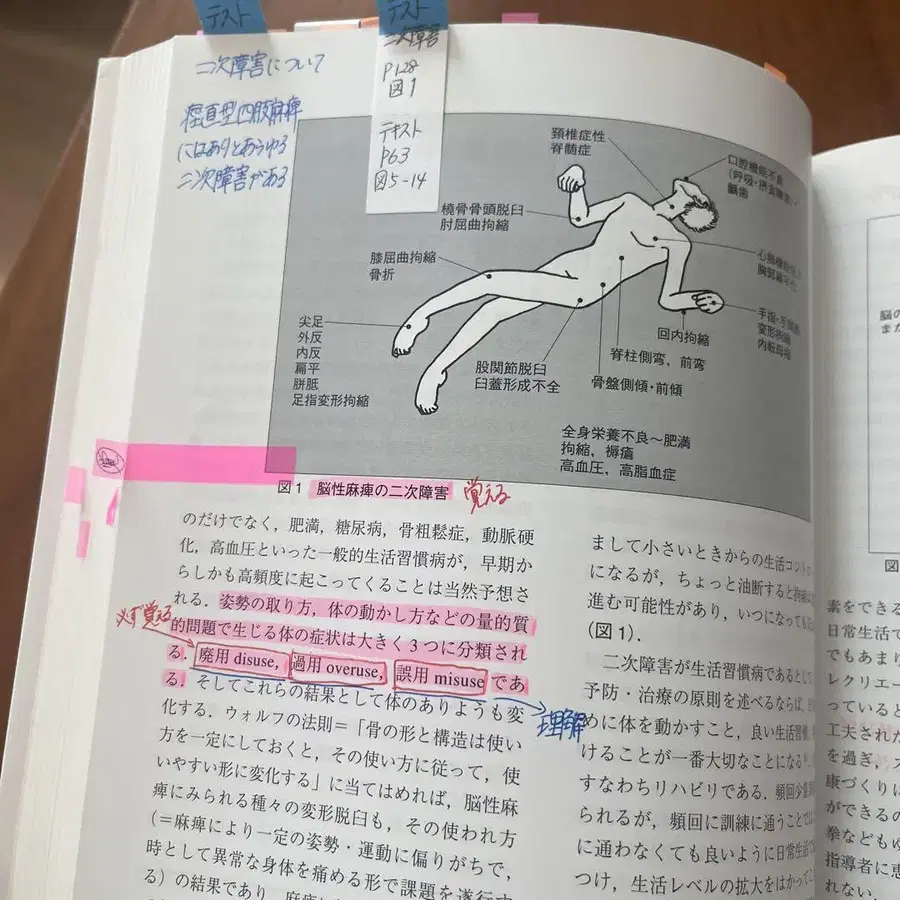 テスト
テスト
二次障害について
痙直型四肢麻痺
にはありとあらゆる
二次障害がある
二次障害
P128
図1
テキスト
P63
図5-14
頚椎症性
脊髄症
口腔機能不良
(呼吸・摂食障害)
齲歯
橈骨骨頭脱臼
肘屈曲拘縮
膝屈曲拘縮
骨折
胸郭
手指・手
変形拘縮
内転母指
回内拘縮
尖足
外反
内反
扁平
胼胝
足指変形拘縮
股関節脱臼
臼蓋形成不全
脊柱側弯，前弯
骨盤側傾・前傾
全身栄養不良～肥満
拘縮，褥瘡
高血圧，高脂血症
図1 脳性麻痺の二次障害
覚える
のだけでなく，肥満，糖尿病，骨粗鬆症，動脈硬
化，高血圧といった一般的生活習慣病が，早期か
らしかも高頻度に起こってくることは当然予想さ
れる．姿勢の取り方，体の動かし方などの量的質
必ず覚える
的問題で生じる体の症状は大きく3つに分類され
る．廃用 disuse，過用 overuse，誤用 misuse であ
る．そしてこれらの結果として体のありようも変
理解
化する．ウォルフの法則＝「骨の形と構造は使い
方を一定にしておくと，その使い方に従って，使
いやすい形に変化する」に当てはめれば，脳性麻
痺にみられる種々の変形脱臼も，その使われ方
(＝麻痺により一定の姿勢・運動に偏りがちで，
時として異常な身体を痛める形で課題を遂行す
る）の結果であり
まして小さいときからの生活コント
になるが，ちょっと油断すると
進む可能性があり，いつになっても
(図1)．
二次障害が生活習慣病であるとし
予防・治療の原則を述べるならば，
めに体を動かすこと，良い生活習慣
けることが一番大切なことになる
すなわちリハビリである．頻回
られるが，頻回に訓練に通うことで
に通わなくても良いように日常生活
つけ，生活レベルの拡大をはかって
脳の
また
図
素をできる
日常生活で
でもあまり
レクリエー
っていると
工夫された
を過ぎ，ス
康づくりに
ができるの
拳なども
指導者に恵
れない．